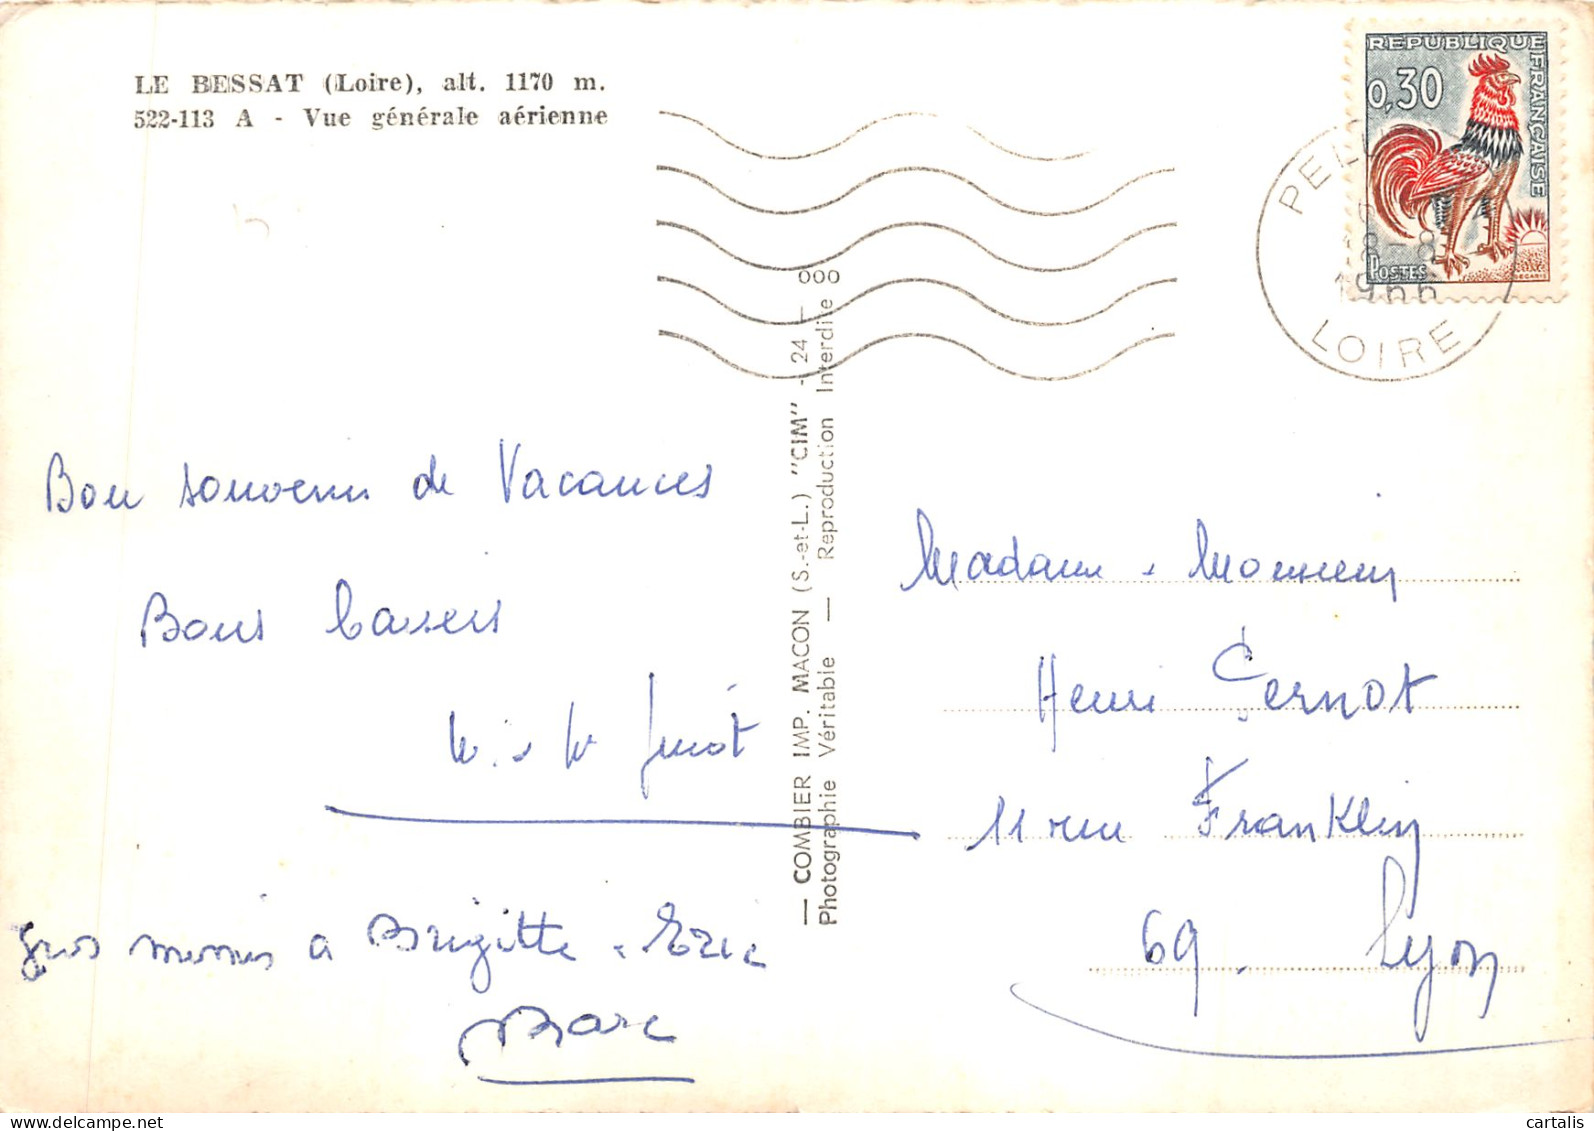 LE BESSAT (Loire), alt. 1170 m.
522-113 A - Vue générale aérienne
REPUBLIQUE FRANÇAISE
0,30
POSTES
DECARIS
18-8
1966
LOIRE
Bon souvenir de Vacances
Bons baisers
Gros mimis a Brigitte Eric
Marc
— COMBIER IMP. MACON (S.-et-L.) "CIM" - 24 —
Photographie Véritable — Reproduction Interdite
000
Madame Monsieur
Henri Cernot
11 rue Franklin
69. Lyon
www.cartalis.com
cartalis